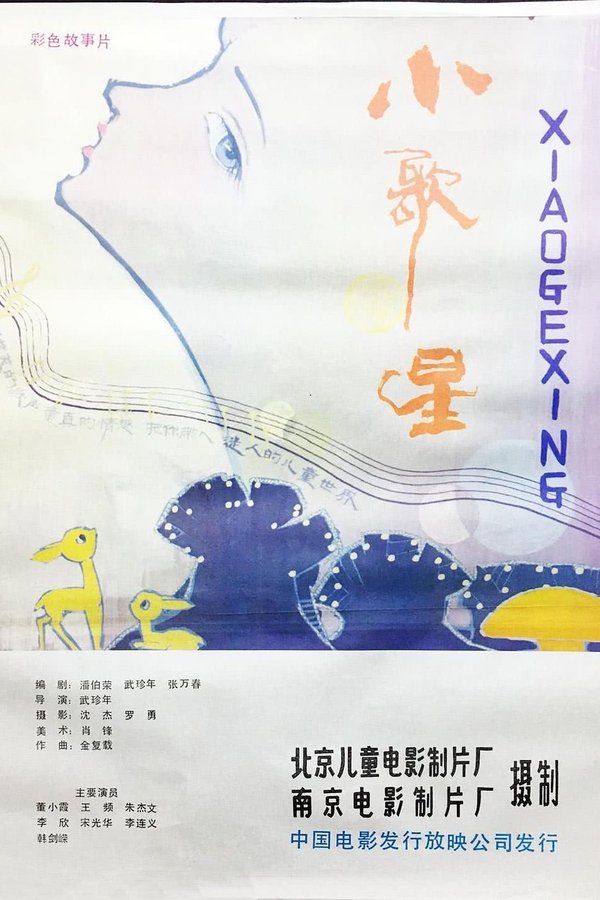 彩色故事片
小歌星
XIAOGEXING
童真的情趣 把你带入 迷人的儿童世界
编 剧：潘伯荣 武珍年 张万春
导 演：武珍年
摄 影：沈 杰 罗 勇
美 术：肖 锋
作 曲：金复载
主要演员
董小霞 王 频 朱杰文
李 欣 宋光华 李连义
韩剑嵘
北京儿童电影制片厂
南京电影制片厂
摄制
中国电影发行放映公司发行